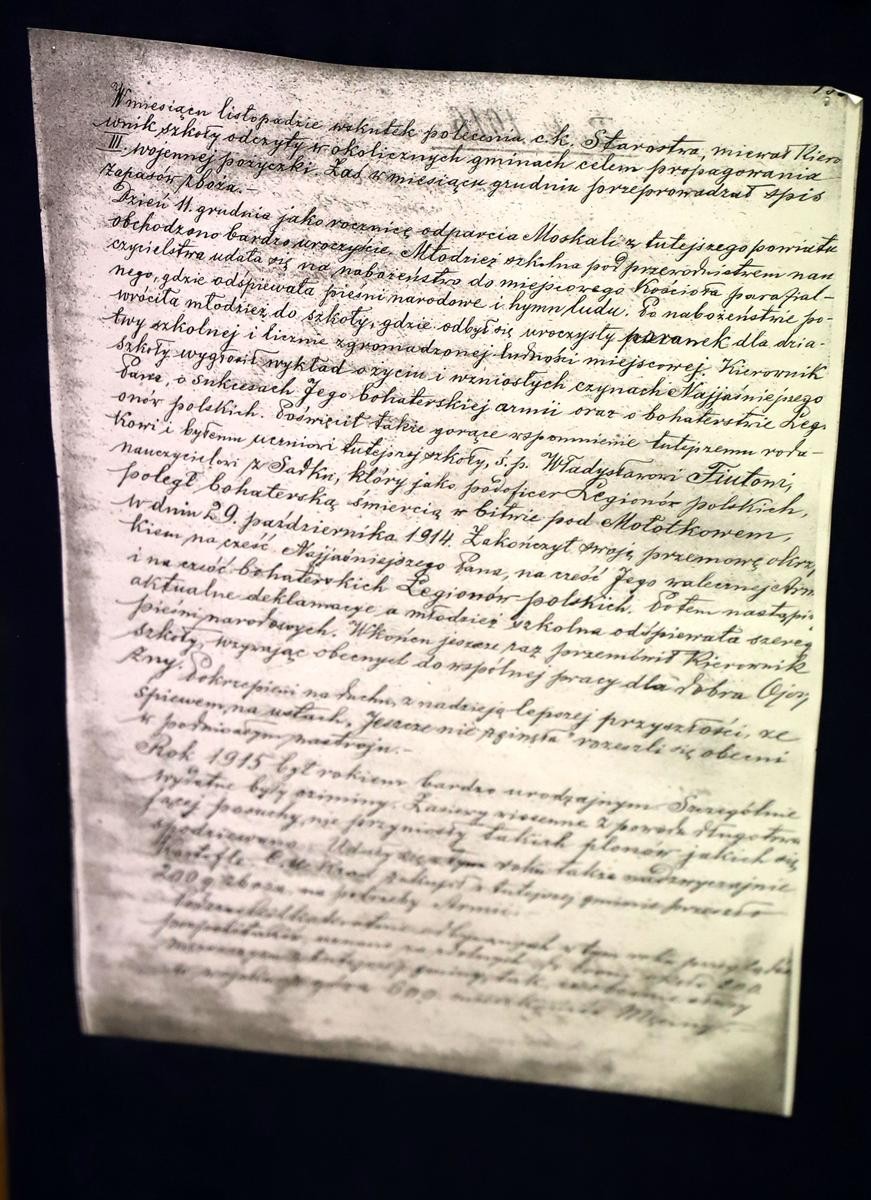 W miesiącu listopadzie wskutek polecenia c.k. Starostwa, miewał Kiero
wnik szkoły odczyty w okolicznych gminach celem propagowania
III. wojennej pożyczki. Zaś w miesiącu grudniu przeprowadzał spis
zapasów zboża.-
Dzień 11. grudnia jako rocznicę odparcia Moskali z tutejszego powiatu
obchodzono bardzo uroczyście. Młodzież szkolna pod przewodnictwem nau
czycielstwa udała się na nabożeństwo do miejscowego Kościoła parafial-
nego, gdzie odśpiewała pieśni narodowe i hymn ludu. Po nabożeństwie po-
wróciła młodzież do szkoły, gdzie odbył się uroczysty poranek dla dzia-
twy szkolnej i licznie zgromadzonej ludności miejscowej. Kierownik
szkoły wygłosił wykład o życiu i wzniosłych czynach Najjaśniejszego
Pana, o sukcesach Jego bohaterskiej armii oraz o bohaterstwie Legi
onów polskich. Poświęcił także gorące wspomnienie tutejszemu roda-
kowi i byłemu uczniowi tutejszej szkoły, ś.p. Władysławowi
nauczycielowi z Sadku, który jako podoficer Legionów polskich,
poległ bohaterską śmiercią w bitwie pod Mołotkowem,
w dniu 29. października 1914. Zakończył swoją przemowę okrzy
kiem na cześć Najjaśniejszego Pana, na cześć Jego walecznej Arm
i na cześć bohaterskich Legionów polskich. Potem nastąpi
aktualne deklamacye a młodzież szkolna odśpiewała szereg
pieśni narodowych. Wkońcu jeszcze raz przemówił Kierownik
szkoły, wzywając obecnych do wspólnej pracy dla dobra Ojczy
zny. Pokrzepieni na duchu, z nadzieją lepszej przyszłości, ze
śpiewem na ustach „Jeszcze nie zginęła" rozeszli się obecni
w podniosłym nastroju.-
Rok 1915 był rokiem bardzo urodzajnym Szczególnie
wydatne były oziminy. Zasiewy wiosenne z powodu długotrwa
łącej posuchy, nie przyniosły takich plonów jakich się
spodziewano. Udały się w tym roku także nadzwyczajnie
Kartofle. zakupił z tutejszej gminie przeszło
200 q zboża na potrzeby Armii.
w tym roku
około 200

600 mieszkańców